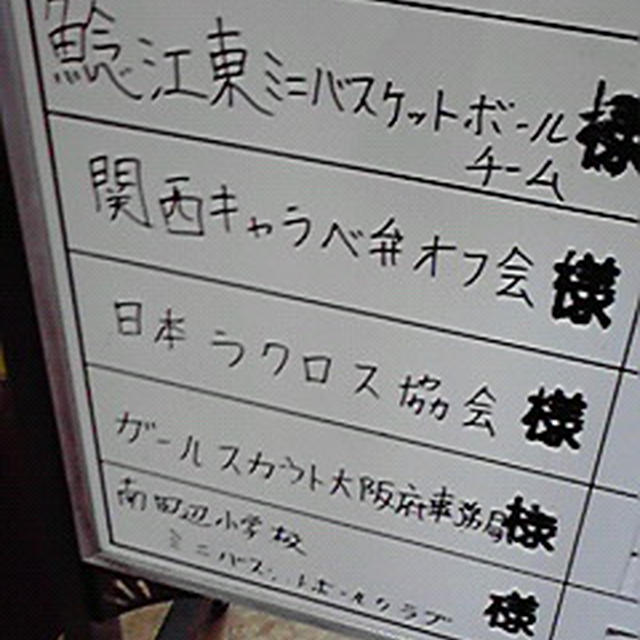 鯰江東ミニバスケットボール 様
チーム
関西キャラベ弁オフ会 様
日本ラクロス協会 様
ガールスカウト大阪府事務局 様
南田辺小学校
ミニバスケットボールクラブ 様